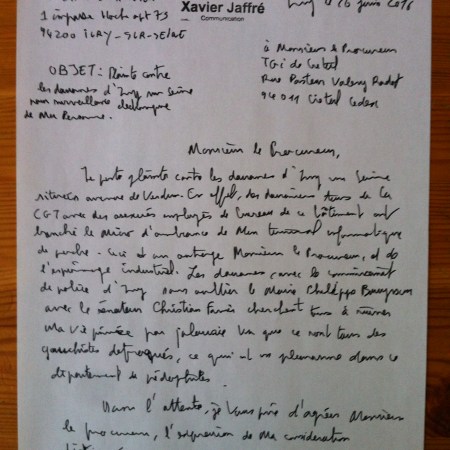 Xavier Jaffré
Communication
Ivry le 16 juin 2016
1 impasse Hoche apt 73
94200 IVRY-SUR-SEINE
à Monsieur le Procureur
TGI de Créteil
Rue Pasteur Valery Radot
94011 Créteil Cedex
OBJET: Plainte contre
les douanes d'Ivry sur Seine
pour surveillance électronique
de Ma Personne.
Monsieur le Procureur,
Je porte plainte contre les douanes d'Ivry sur Seine
situées avenue de Verdun. En effet, des douaniers tous de la
CGT avec des employés de bureau de ce bâtiment ont
branché le de Mon terminal informatique
de Ceci est un outrage Monsieur le Procureur, et de
l'espionnage industriel. Les douanes, avec le commissariat
de police d'Ivry sans oublier le Maire Philippe Bouyssou
avec le sénateur Christian Favier cherchent tous à ruiner
Ma vie privée par jalousie vu que ce sont tous des
gauchistes détraqués, ce qui va dans ce
département de pédophiles.
Dans l'attente, je vous prie d'agréer Monsieur
le procureur, l'expression de Ma considération